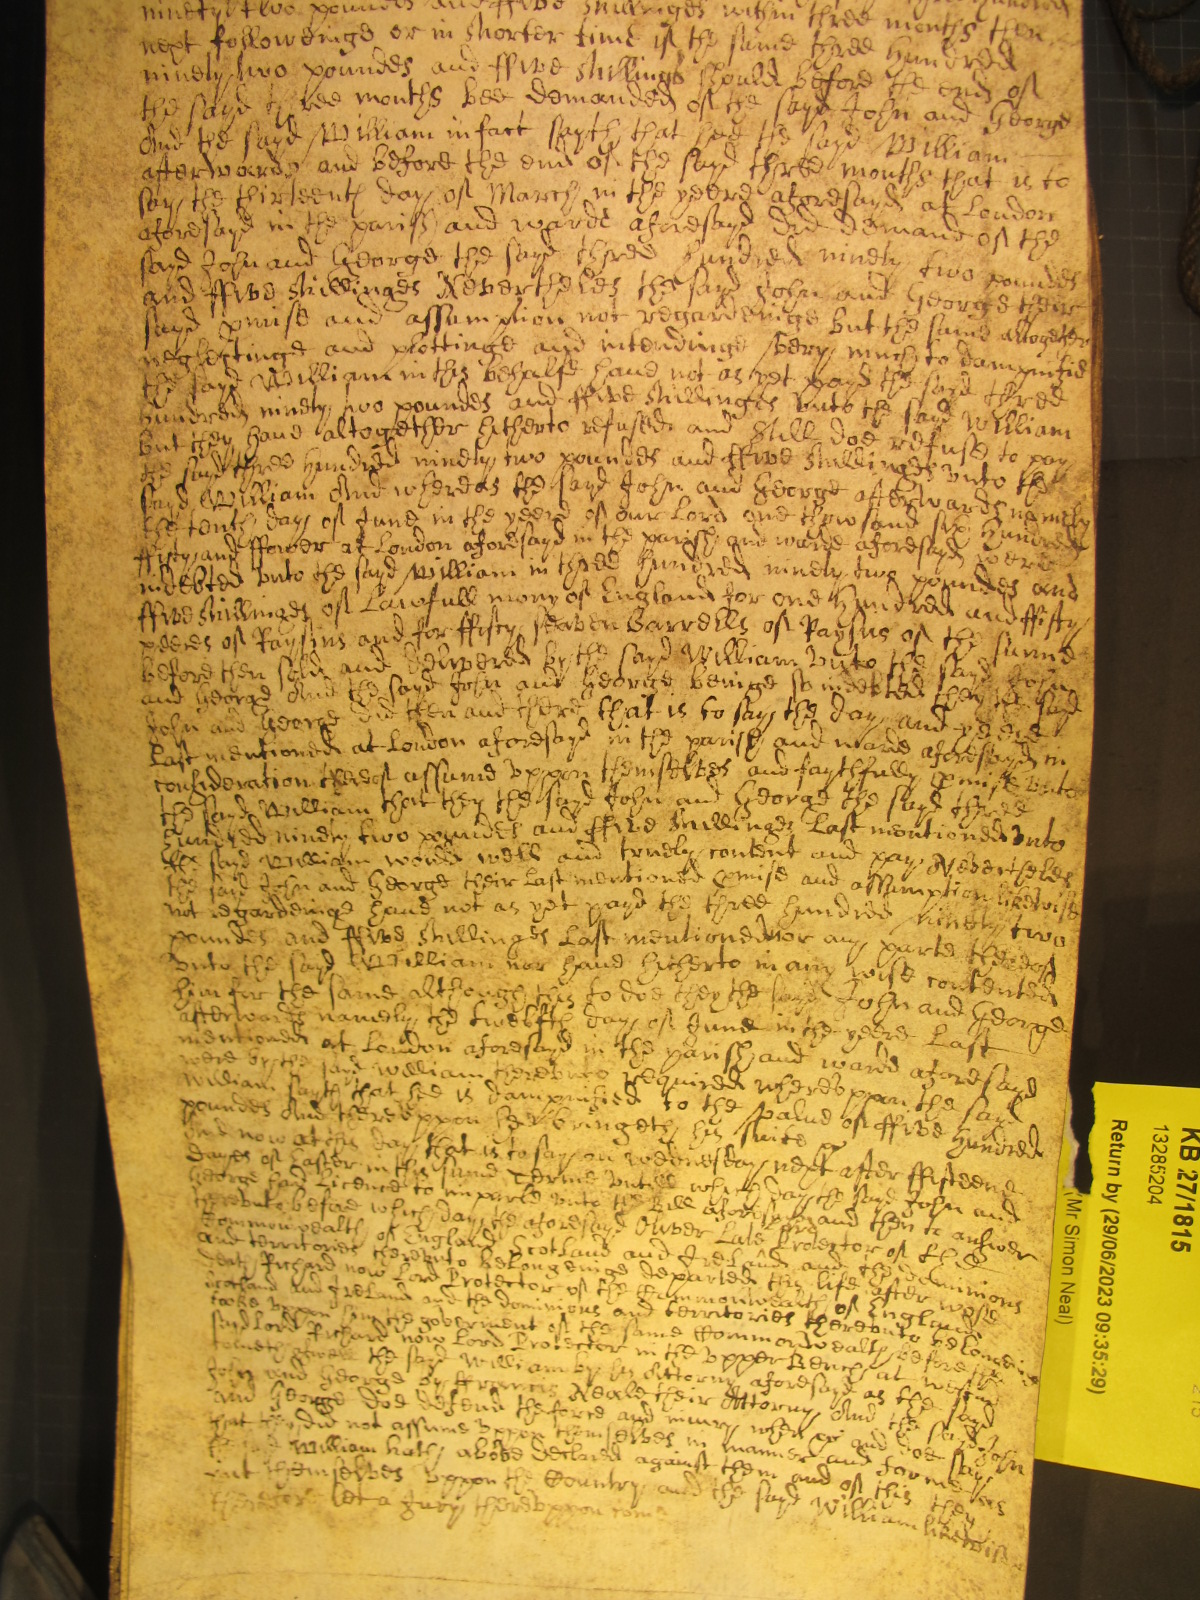 ninety two poundes and ffive shillinges within three months then
next followeinge or in shorter time if the same three hundred
ninety two poundes and ffive shillings should before the end of
the sayd three months bee demanded of the sayd John and George
And the sayd William in fact sayth that hee the sayd William
afterwards and before the end of the sayd three months that is to
say the thirteenth day of March in the yeere aforesayd at London
aforesayd in the parish and warde aforesayd did demand of the
sayd John and George the sayd three hundred ninety two poundes
and ffive shillinges Nevertheles the sayd John and George their
sayd pmise and assumption not regardeinge but the same altogether
neglectinge and plottinge and intendinge very much to dampnifie
the sayd William in this behalfe have not as yet payd the sayd three
hundred ninety two poundes and ffive shillinges unto the sayd William
but they have altogether hitherto refused and still doe refuse to pay
the sayd three hundred ninety two poundes and ffive shillinges unto the
sayd William And whereas the sayd John and George afterwards namely
the tenth day of June in the yeere of our Lord one thowsand six hundred
ffifty and ffower at London aforesayd in the parish and warde aforesayd were
indebted unto the sayd William in three hundred ninety two poundes and
ffive shillinges of Lawfull mony of England for one hundred and ffifty
peeces of Raysins and for ffifty seaven Barrells of Raysins of the sunne
before then sold and delivered by the sayd William unto the sayd John
and George And the sayd John and George beinge so indebted they the sayd
John and George did then and there that is to say the day and yeere
Last mentioned at London aforesayd in the parish and warde aforesayd in
consideration thereof assume uppon themselves and faythfully pmise unto
the sayd William that they the sayd John and George the sayd three
hundred ninety two poundes and ffive shillinges Last mentioned unto
the sayd William would well and truely content and pay Neverthelesse
the sayd John and George their Last mentioned pmise and assumption likewise
not regardeinge have not as yet payd the three hundred ninety two
poundes and ffive shillinges Last mentioned nor any parte thereof
unto the sayd William nor have hitherto in any wise contented
him for the same although this to doe they the sayd John and George
afterwards namely the twelfth day of June in the yeere Last
mentioned at London aforesayd in the parish and ward aforesayd
were by the sayd William thereunto required whereuppon the sayd
William sayth that hee is dampnified to the value of ffive hundred
poundes And thereuppon hee bringeth his suite &c
And now at this day that is to say on Wednesday next after ffifteene
dayes of Easter in this same Terme untill which day the sayd John and
George had Licence to imparle unto the Bill aforesayd and then to answer
thereunto before which day the aforesayd Oliver Late Protector of the
Commonwealth of England Scotland and Ireland and the dominions
and territories thereunto belongeinge departed this life after whose
death Richard now Lord Protector of the Commonwealth of England
Scotland and Ireland and the dominions and territories thereunto belongeinge
tooke uppon him the goverment of the same Commonwealth before the
sayd Lord Richard now Lord Protector in the upper Bench at
cometh aswell the sayd William by his Attorny aforesayd as the sayd
John and George by Francis Neale their Attorny And the sayd John
and George doe defend the force and injury when &c and doe say
that they did not assume uppon themselves in manner and forme as
the sayd William hath above declared against them and of this they
put themselves uppon the Country and the sayd William likewise
therefore let a Jury thereuppon come
KB 27/1815
13285204
Return by (29/06/2023 09:35:29)
(Mr Simon Neal)